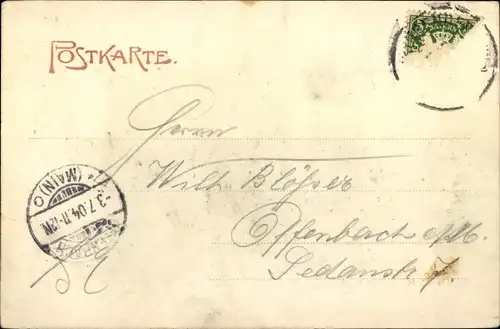 POSTKARTE.
Herrn
Wilh. Blößer
Offenbach a/M.
Sedanstr. 7.
(MAIN) O
-3.7.04.11-12N.